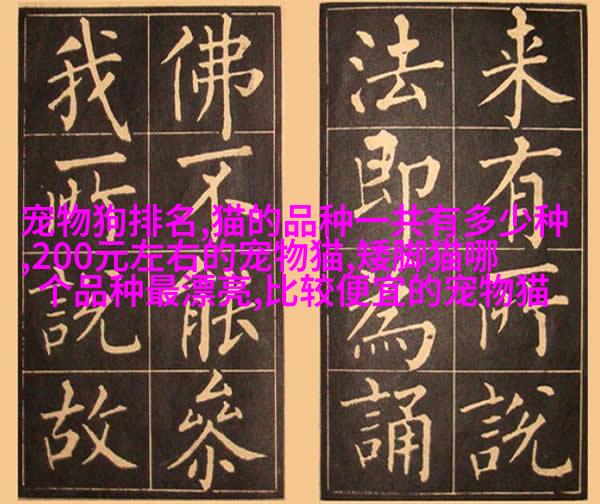 来有所說
法即為誦
佛不能參
我所說故
宠物狗排名,猫的品种一共有多少种
,200元左右的宠物猫,矮脚猫哪
个品种最漂亮,比较便宜的宠物猫